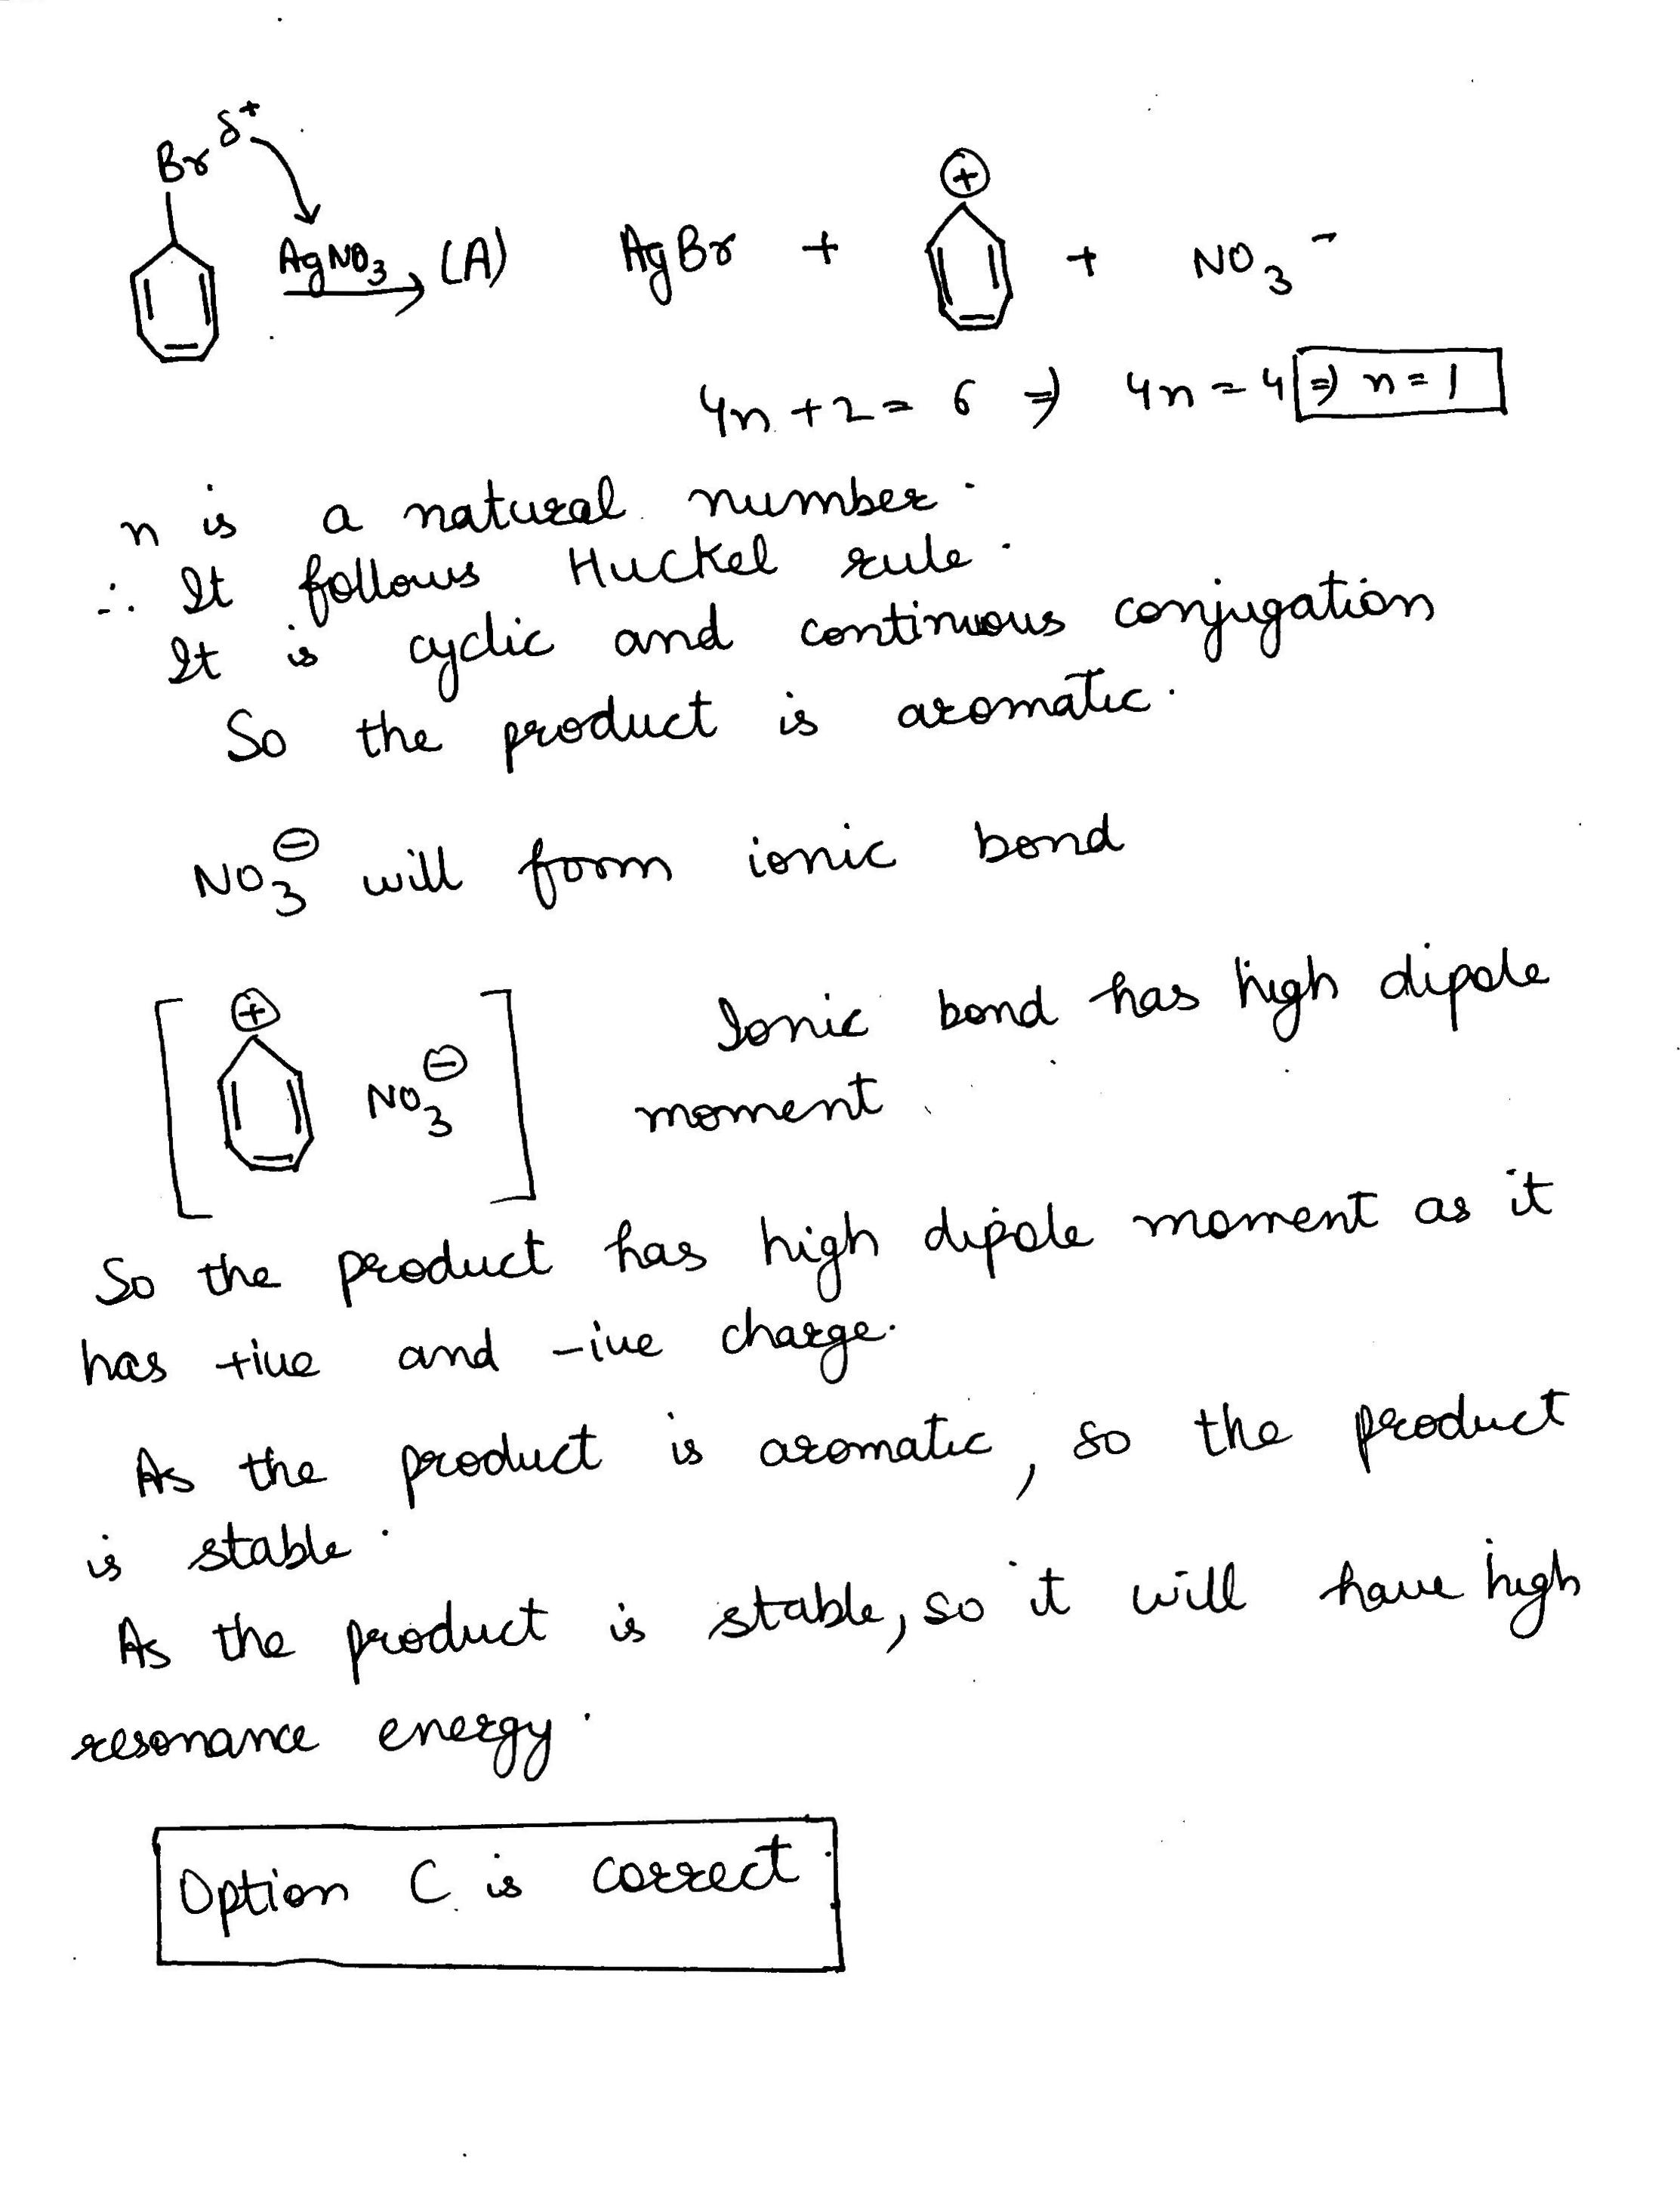 Br δ+
AgNO3 (A) AgBr + ⊕ + NO3 -
4n + 2 = 6 ⇒ 4n = 4 ⇒ n = 1
n is a natural number.
∴ It follows Huckel rule.
It is cyclic and continuous conjugation
So the product is aromatic.
NO3⊖ will form ionic bond
[⊕ NO3⊖] Ionic bond has high dipole
moment.
So the product has high dipole moment as it
has +ive and -ive charge.
As the product is aromatic, so the product
is stable.
As the product is stable, so it will have high
resonance energy.
Option C is correct.